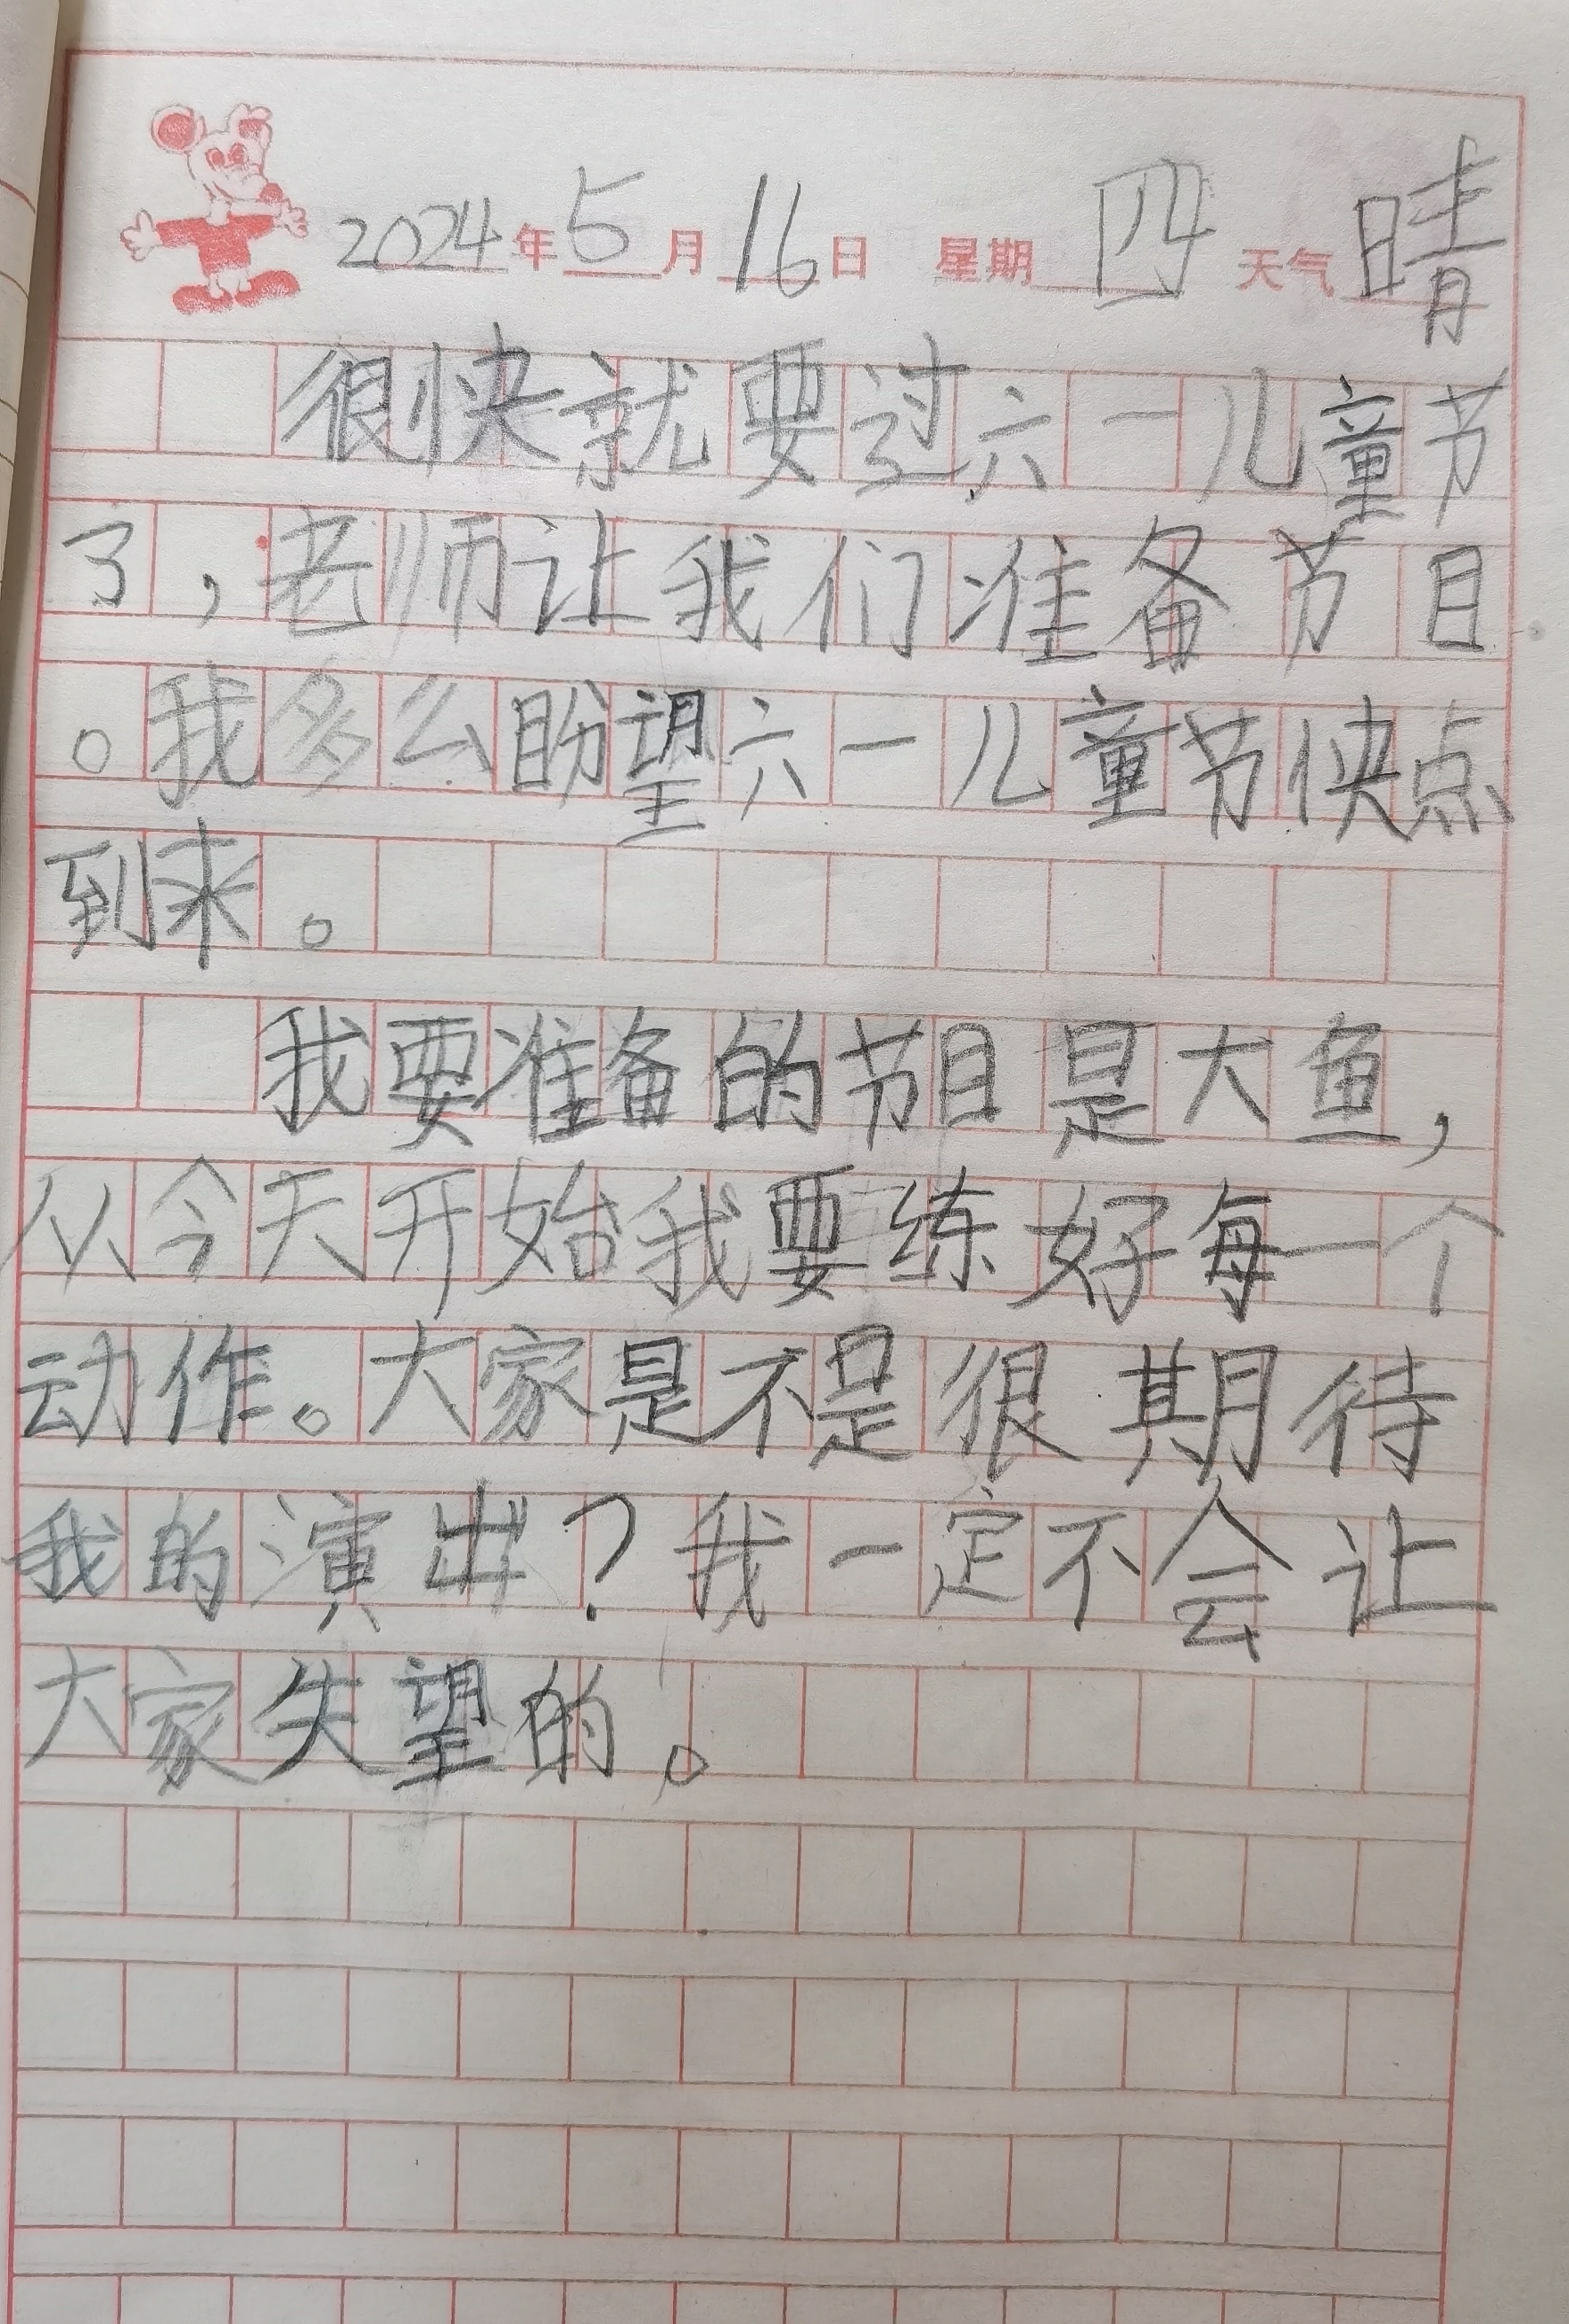 2024年5月16日 星期四 天气晴
很快就要过六一儿童节
了,老师让我们准备节目
。我多么盼望六一儿童节快点
到来。
我要准备的节目是大鱼,
从今天开始我要练好每一个
动作。大家是不是很期待
我的演出?我一定不会让
大家失望的。